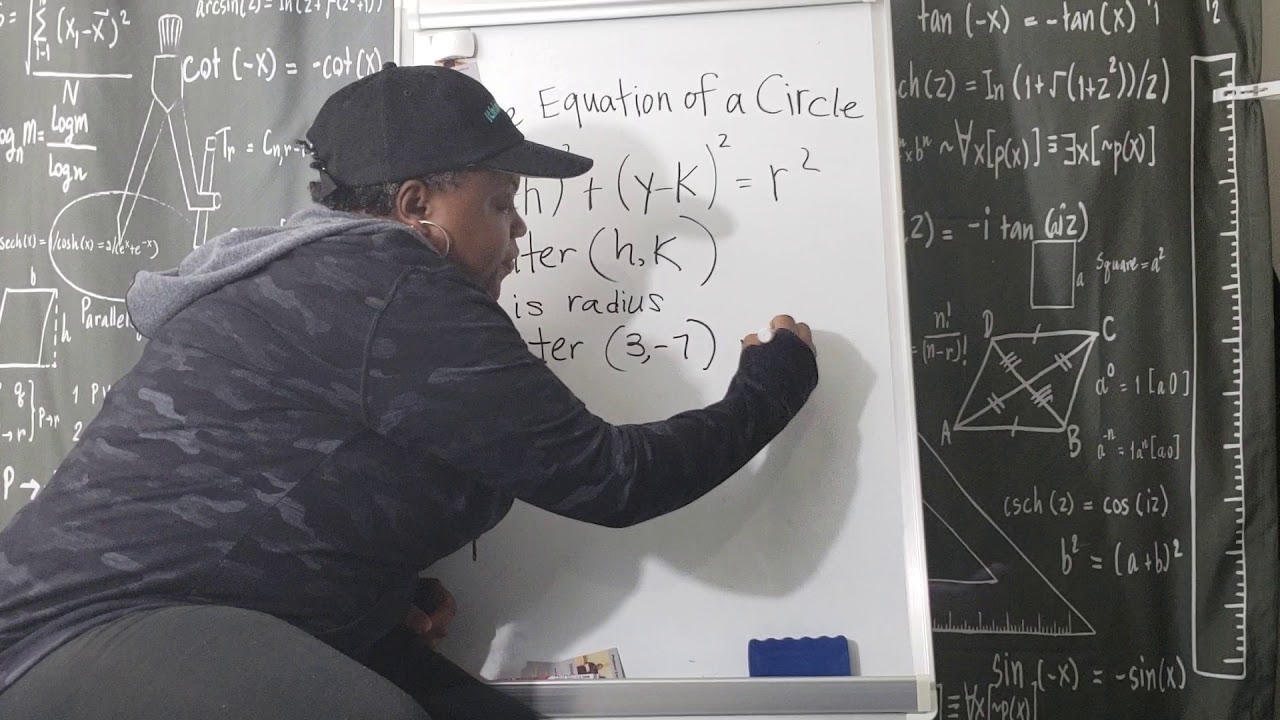 arcsin(z) = In(z+√(z²+1))
Σ (x₁-x̄)²
i=1
N
cot (-x) = -cot(x)
log_n m = Logm
Logn
Tr = C
sech(x) = 1/cosh(x) = 2/(eˣ+e⁻ˣ)
b
h
Parallel
q
P→r
1 P
2
P →
Equation of a Circle
h)² + (y-k)² = r²
(h,k)
is radius
(3,-7)
tan (-x) = -tan(x)
12
ch(z) = In (1+√(1+z²))/z)
bⁿ ~∀x[p(x)] ≡ ∃x[~p(x)]
z) = -i tan (iz)
a
Square = a²
n!
(n-r)!
D C
A B
a⁰ = 1 [a0]
a⁻ⁿ = 1aⁿ [a0]
csch (z) = cos (iz)
b² = (a+b)²
sin (-x) = -sin(x)
≡ ∀x[~p(x)]